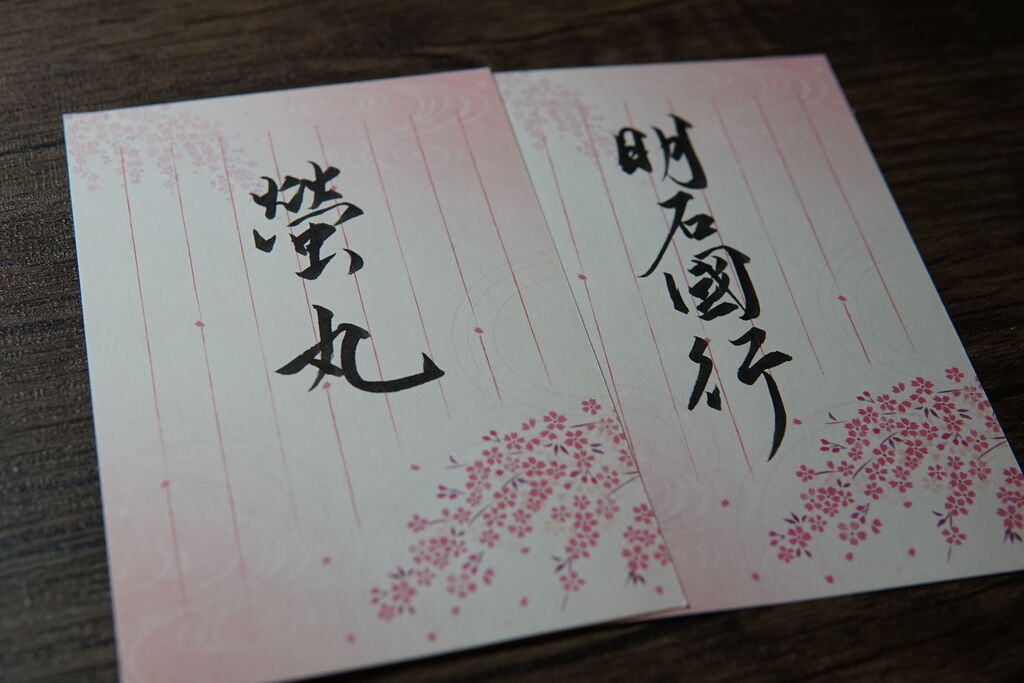 螢丸
明石國行